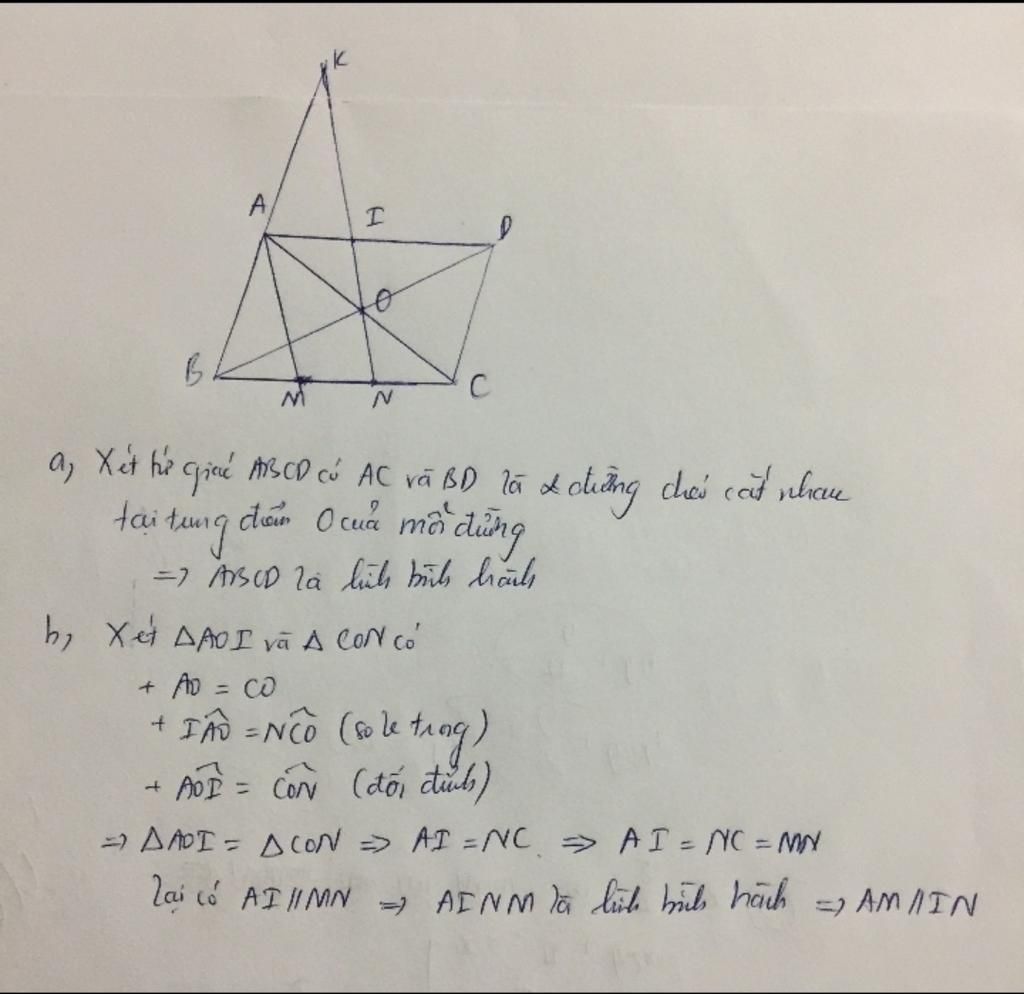 K
A I D
O
B M N C
a, Xét tứ giác ABCD có AC và BD là 2 đường chéo cắt nhau
tại trung điểm O của mỗi đường
=> ABCD là hình bình hành
b, Xét ΔAOI và Δ CON có
+ AO = CO
+ IÂO = NĈO (so le trong)
+ AÔI = CÔN (đối đỉnh)
=> ΔAOI = ΔCON => AI = NC. => AI = NC = MN
lại có AI // MN => AINM là hình bình hành => AM // IN